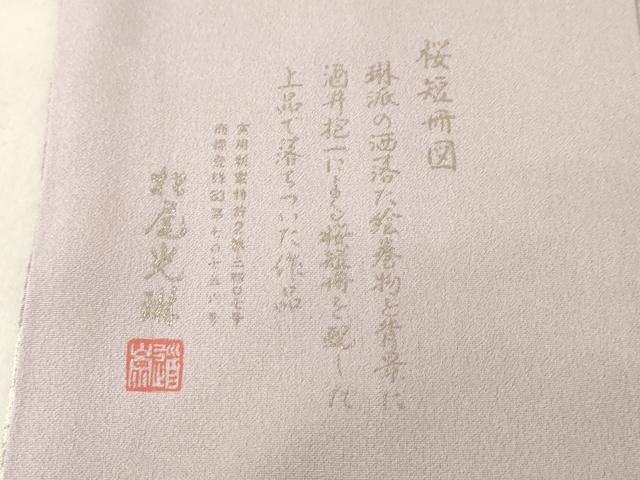 桜短冊図
琳派の洒落た絵巻物を背景に
酒井抱一による桜短冊を配した
上品で落ちついた作品
実用新案特許
商標登録 第七六十五六号
尾光琳